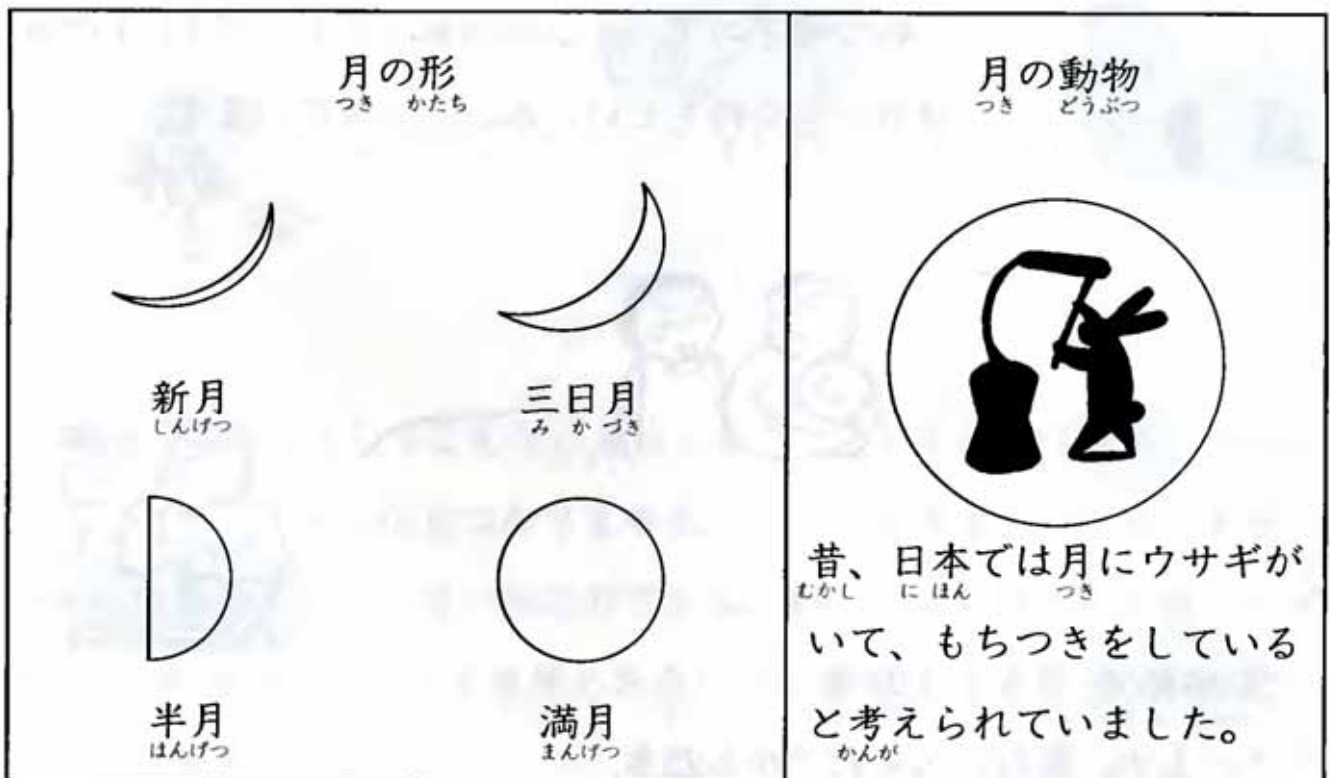 月の形
つき かたち
新月
しんげつ
三日月
み か づき
半月
はんげつ
満月
まんげつ
月の動物
つき どうぶつ
昔、日本では月にウサギが
むかし に ほん つき
いて、もちつきをしている
と考えられていました。
かんが